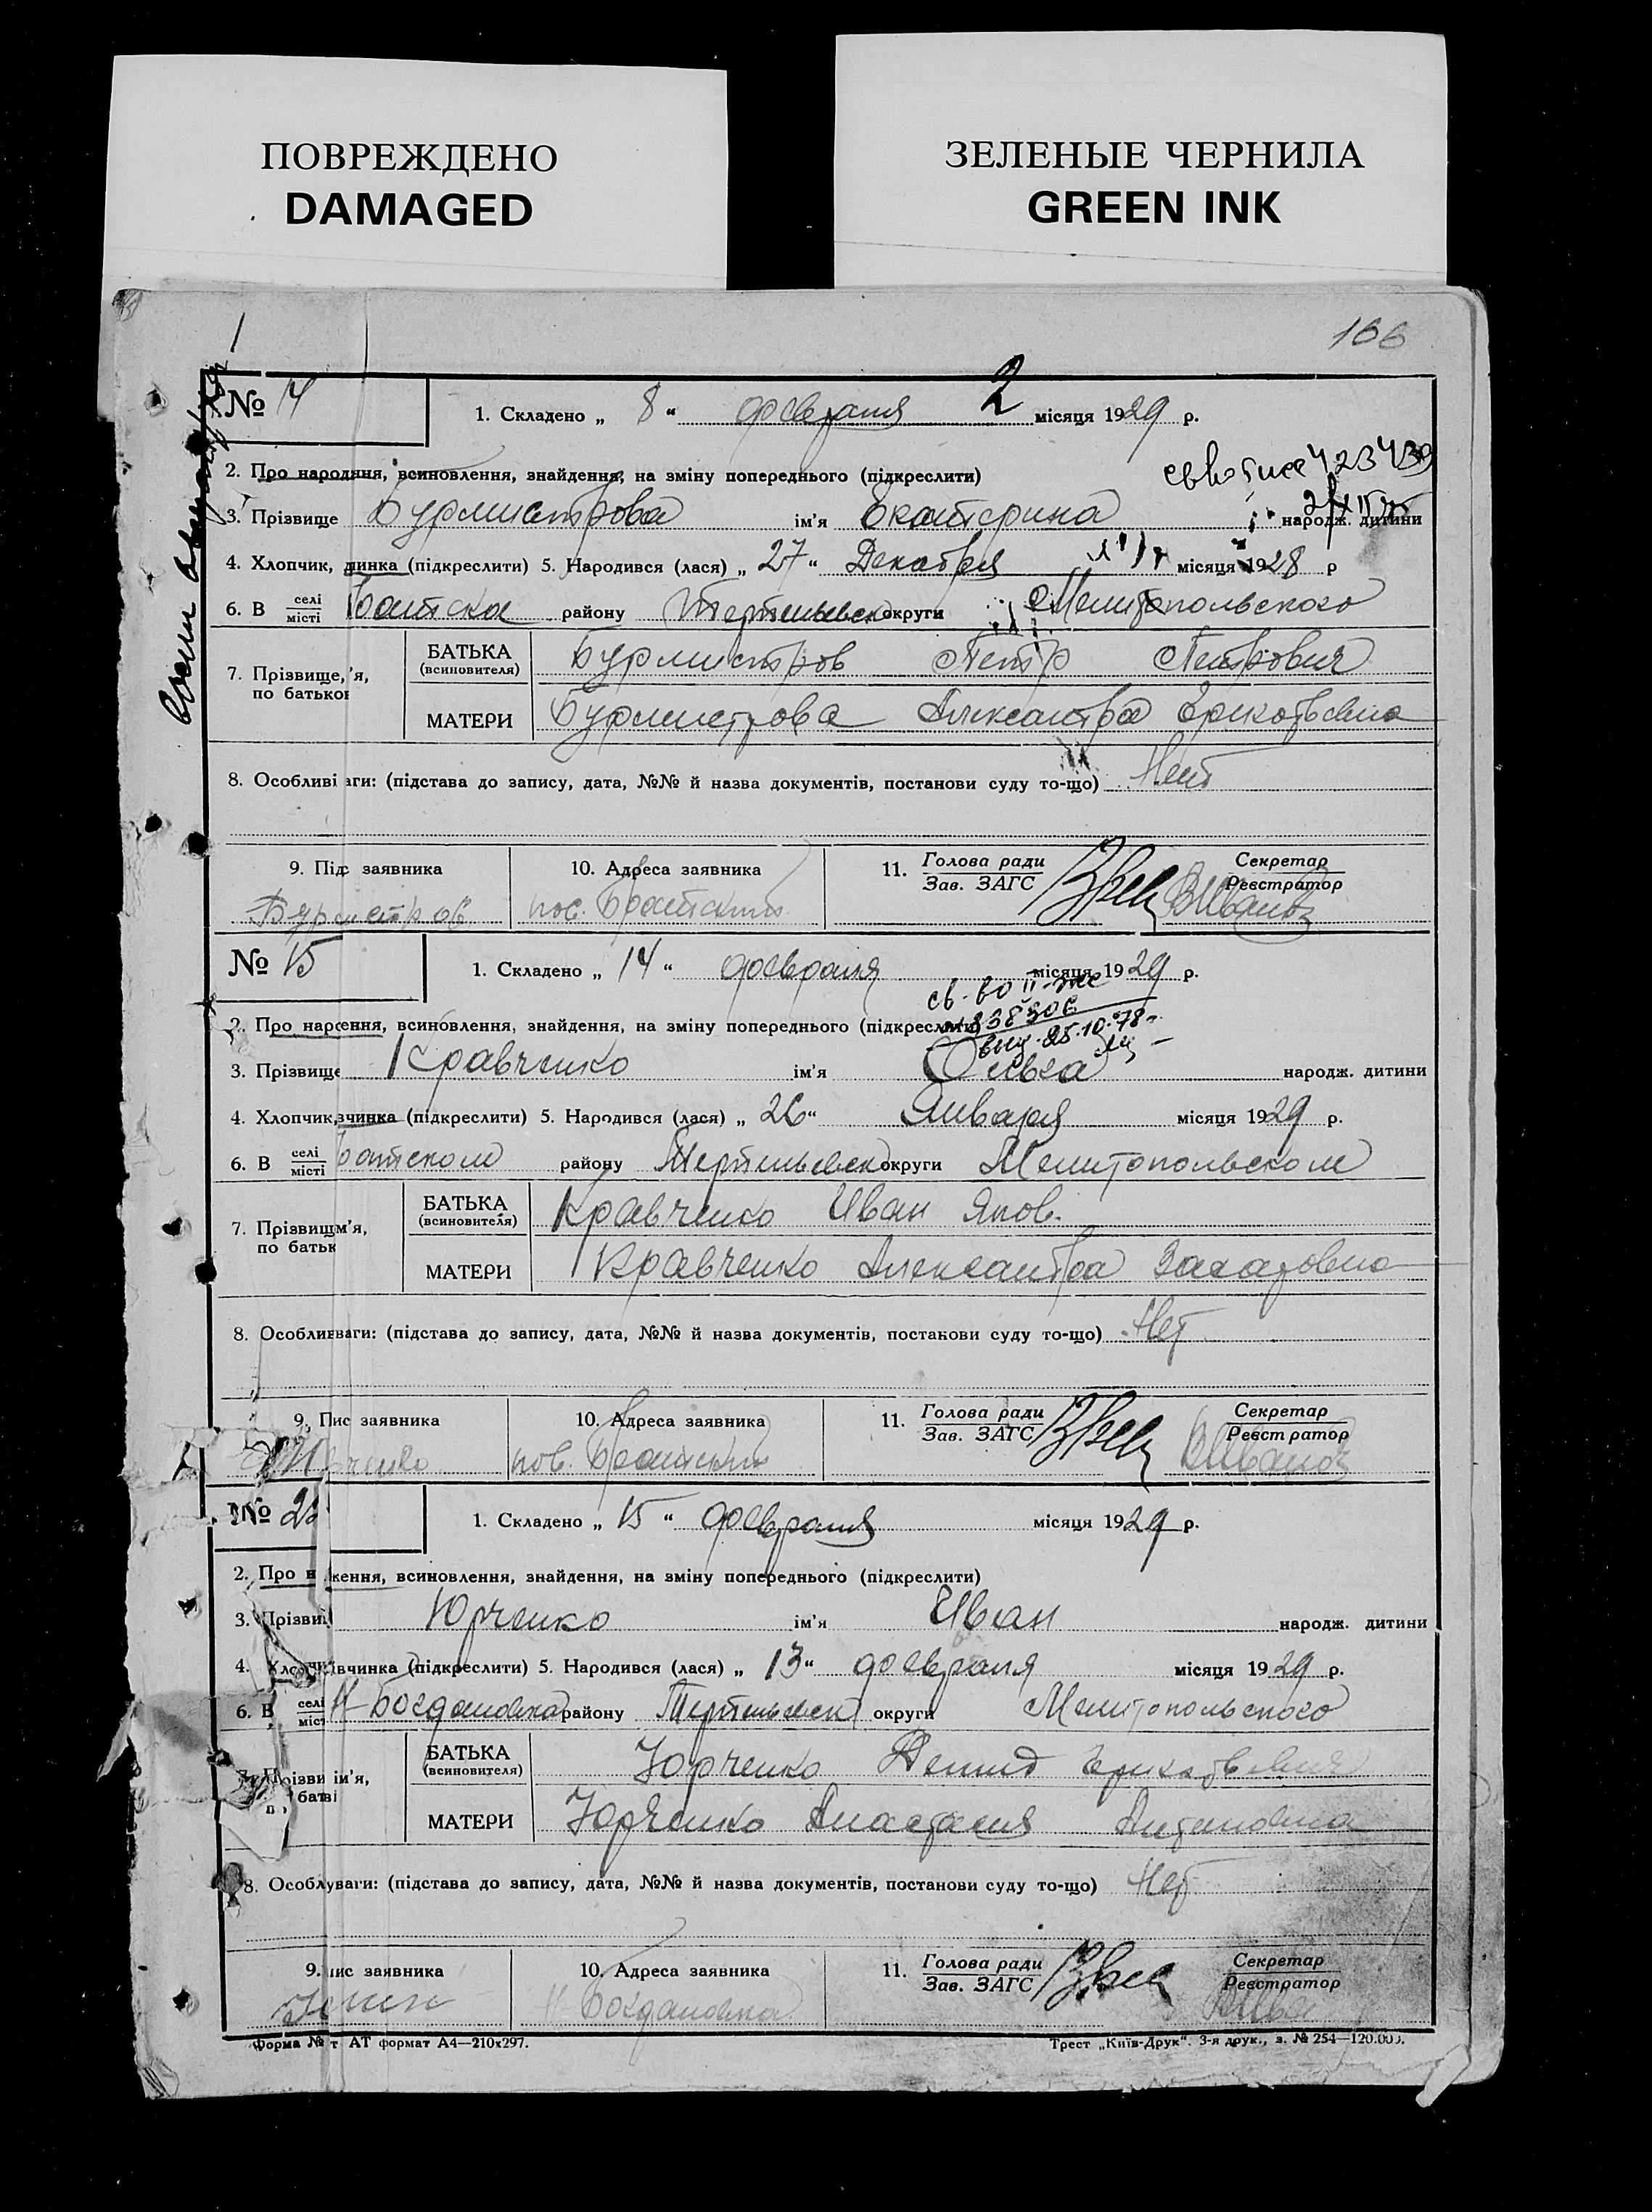 ПОВРЕЖДЕНО
DAMAGED
ЗЕЛЕНЫЕ ЧЕРНИЛА
GREEN INK
166
№ 14
1. Складено „ 8 “ февраля 2 місяця 1929 р.
2. Про народння, всиновлення, знайдення, на зміну попереднього (підкреслити)
423439
3. Прізвище Бурмистрова ім'я Екатерина народж. дитини
4. Хлопчик, динка (підкреслити) 5. Народився (лася) „ 27 “ Декабря місяця 1928 р
6. В селі/місті Братска району округи Мелитопольского
7. Прізвище, 'я, по батькові
БАТЬКА (всиновителя) Бурмистров Петр Петрович
МАТЕРИ Бурмистрова Александра
8. Особливі аги: (підстава до запису, дата, №№ й назва документів, постанови суду то-що) Нет
9. Підс заявника
10. Адреса заявника
11. Голова ради Зав. ЗАГС
Секретар Реєстратор
Бурмистров пос. Братский
№ 15
1. Складено „ 14 “ февраля місяця 1929 р.
св-во II-
2. Про нарсення, всиновлення, знайдення, на зміну попереднього (підкреслити)
838306
25.10.78
3. Прізвище Кравченко ім'я Ольга народж. дитини
4. Хлопчик, вчинка (підкреслити) 5. Народився (лася) „ 26 “ Января місяця 1929 р.
6. В селі/місті Братском району округи Мелитопольском
7. Прізвищм'я, по батьк
БАТЬКА (всиновителя) Кравченко Иван Яков.
МАТЕРИ Кравченко Александра Захаровна
8. Особливваги: (підстава до запису, дата, №№ й назва документів, постанови суду то-що) Нет
9. Пис заявника
10. Адреса заявника
11. Голова ради Зав. ЗАГС
Секретар Реєстратор
пос. Братский
№
1. Складено „ 15 “ февраля місяця 1929 р.
2. Про н ження, всиновлення, знайдення, на зміну попереднього (підкреслити)
3. Прізви Юрченко ім'я Иван народж. дитини
4. Хлопчи івчинка (підкреслити) 5. Народився (лася) „ 13 “ февраля місяця 1929 р.
6. В селі/міст Н-Богдановка району округи Мелитопольского
7. Прізви ім'я, по батві
БАТЬКА (всиновителя) Юрченко Демид
МАТЕРИ Юрченко Анастасия Антоновна
8. Особлуваги: (підстава до запису, дата, №№ й назва документів, постанови суду то-що) Нет
9. пис заявника
10. Адреса заявника
11. Голова ради Зав. ЗАГС
Секретар Реєстратор
Н Богдановка
Форма № т АТ формат А4—210х297.
Трест „Київ-Друк“. 3-я друк., з. № 254—120.000.